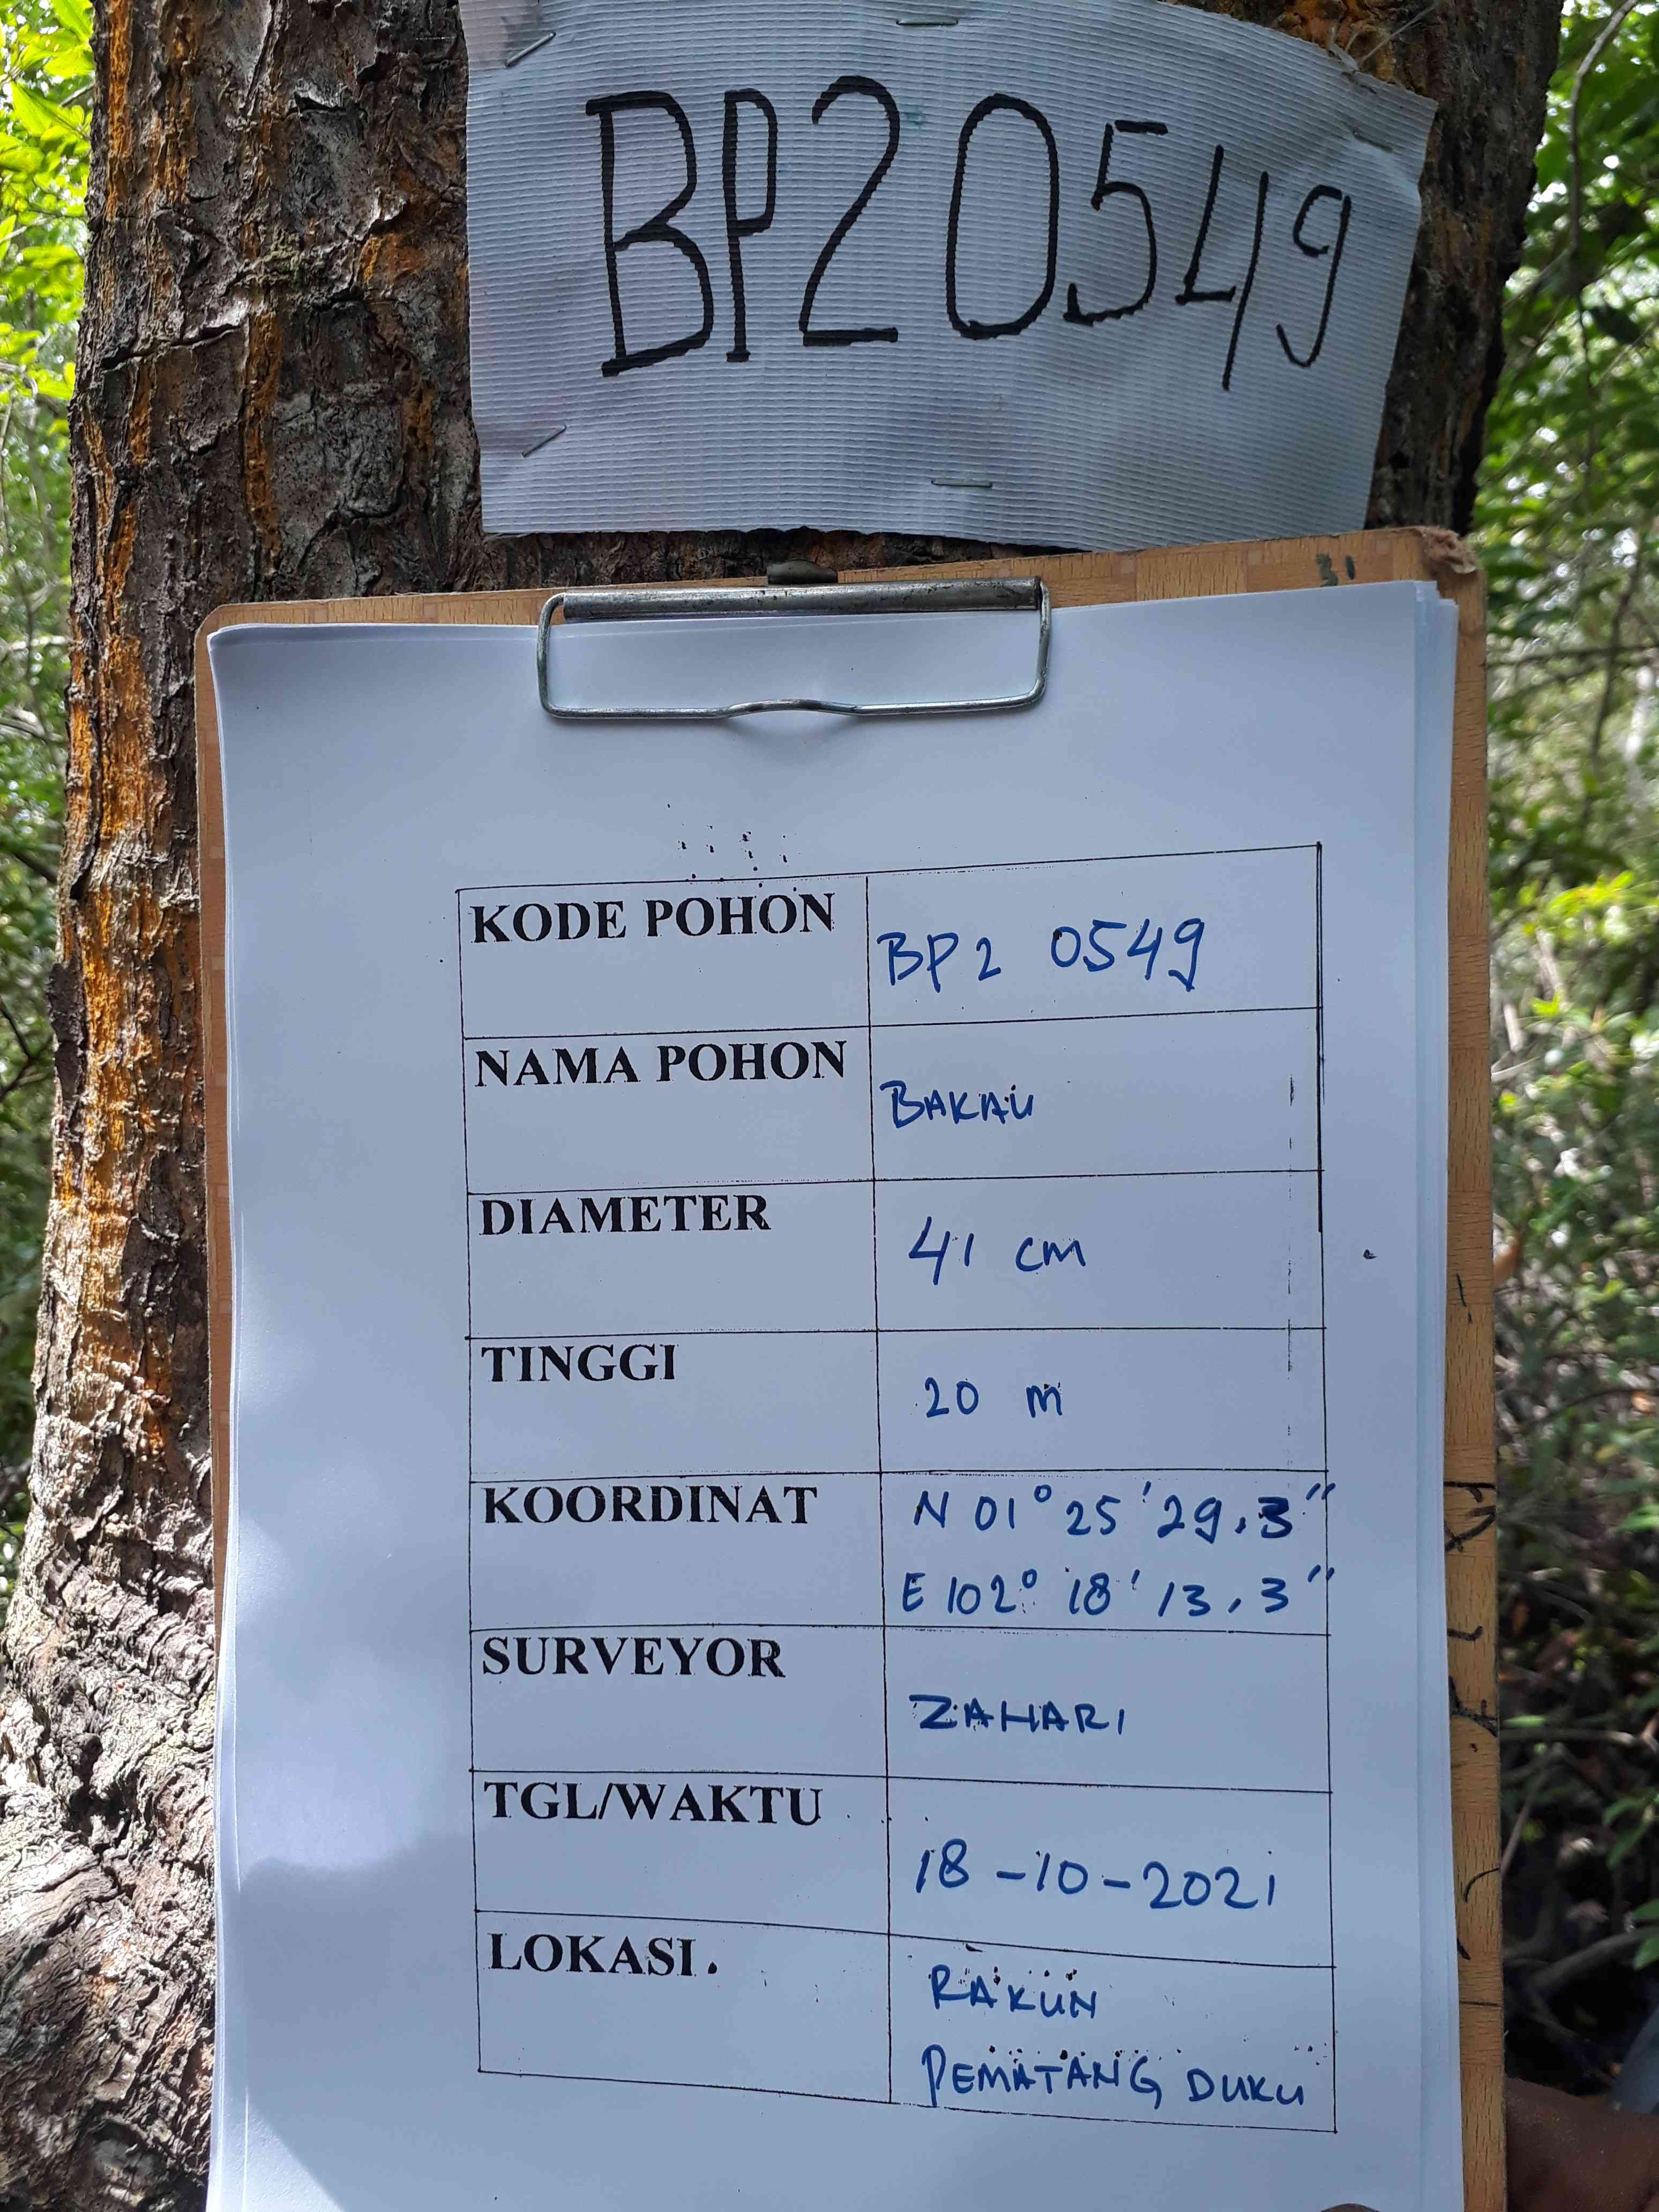 BP20549
31
KODE POHON BP2 0549
NAMA POHON BAKAU
DIAMETER 41 cm
TINGGI 20 m
KOORDINAT N 01° 25' 29,3"
E 102° 18' 13,3"
SURVEYOR ZAHARI
TGL/WAKTU 18-10-2021
LOKASI. RAKUN
PEMATANG DUKU